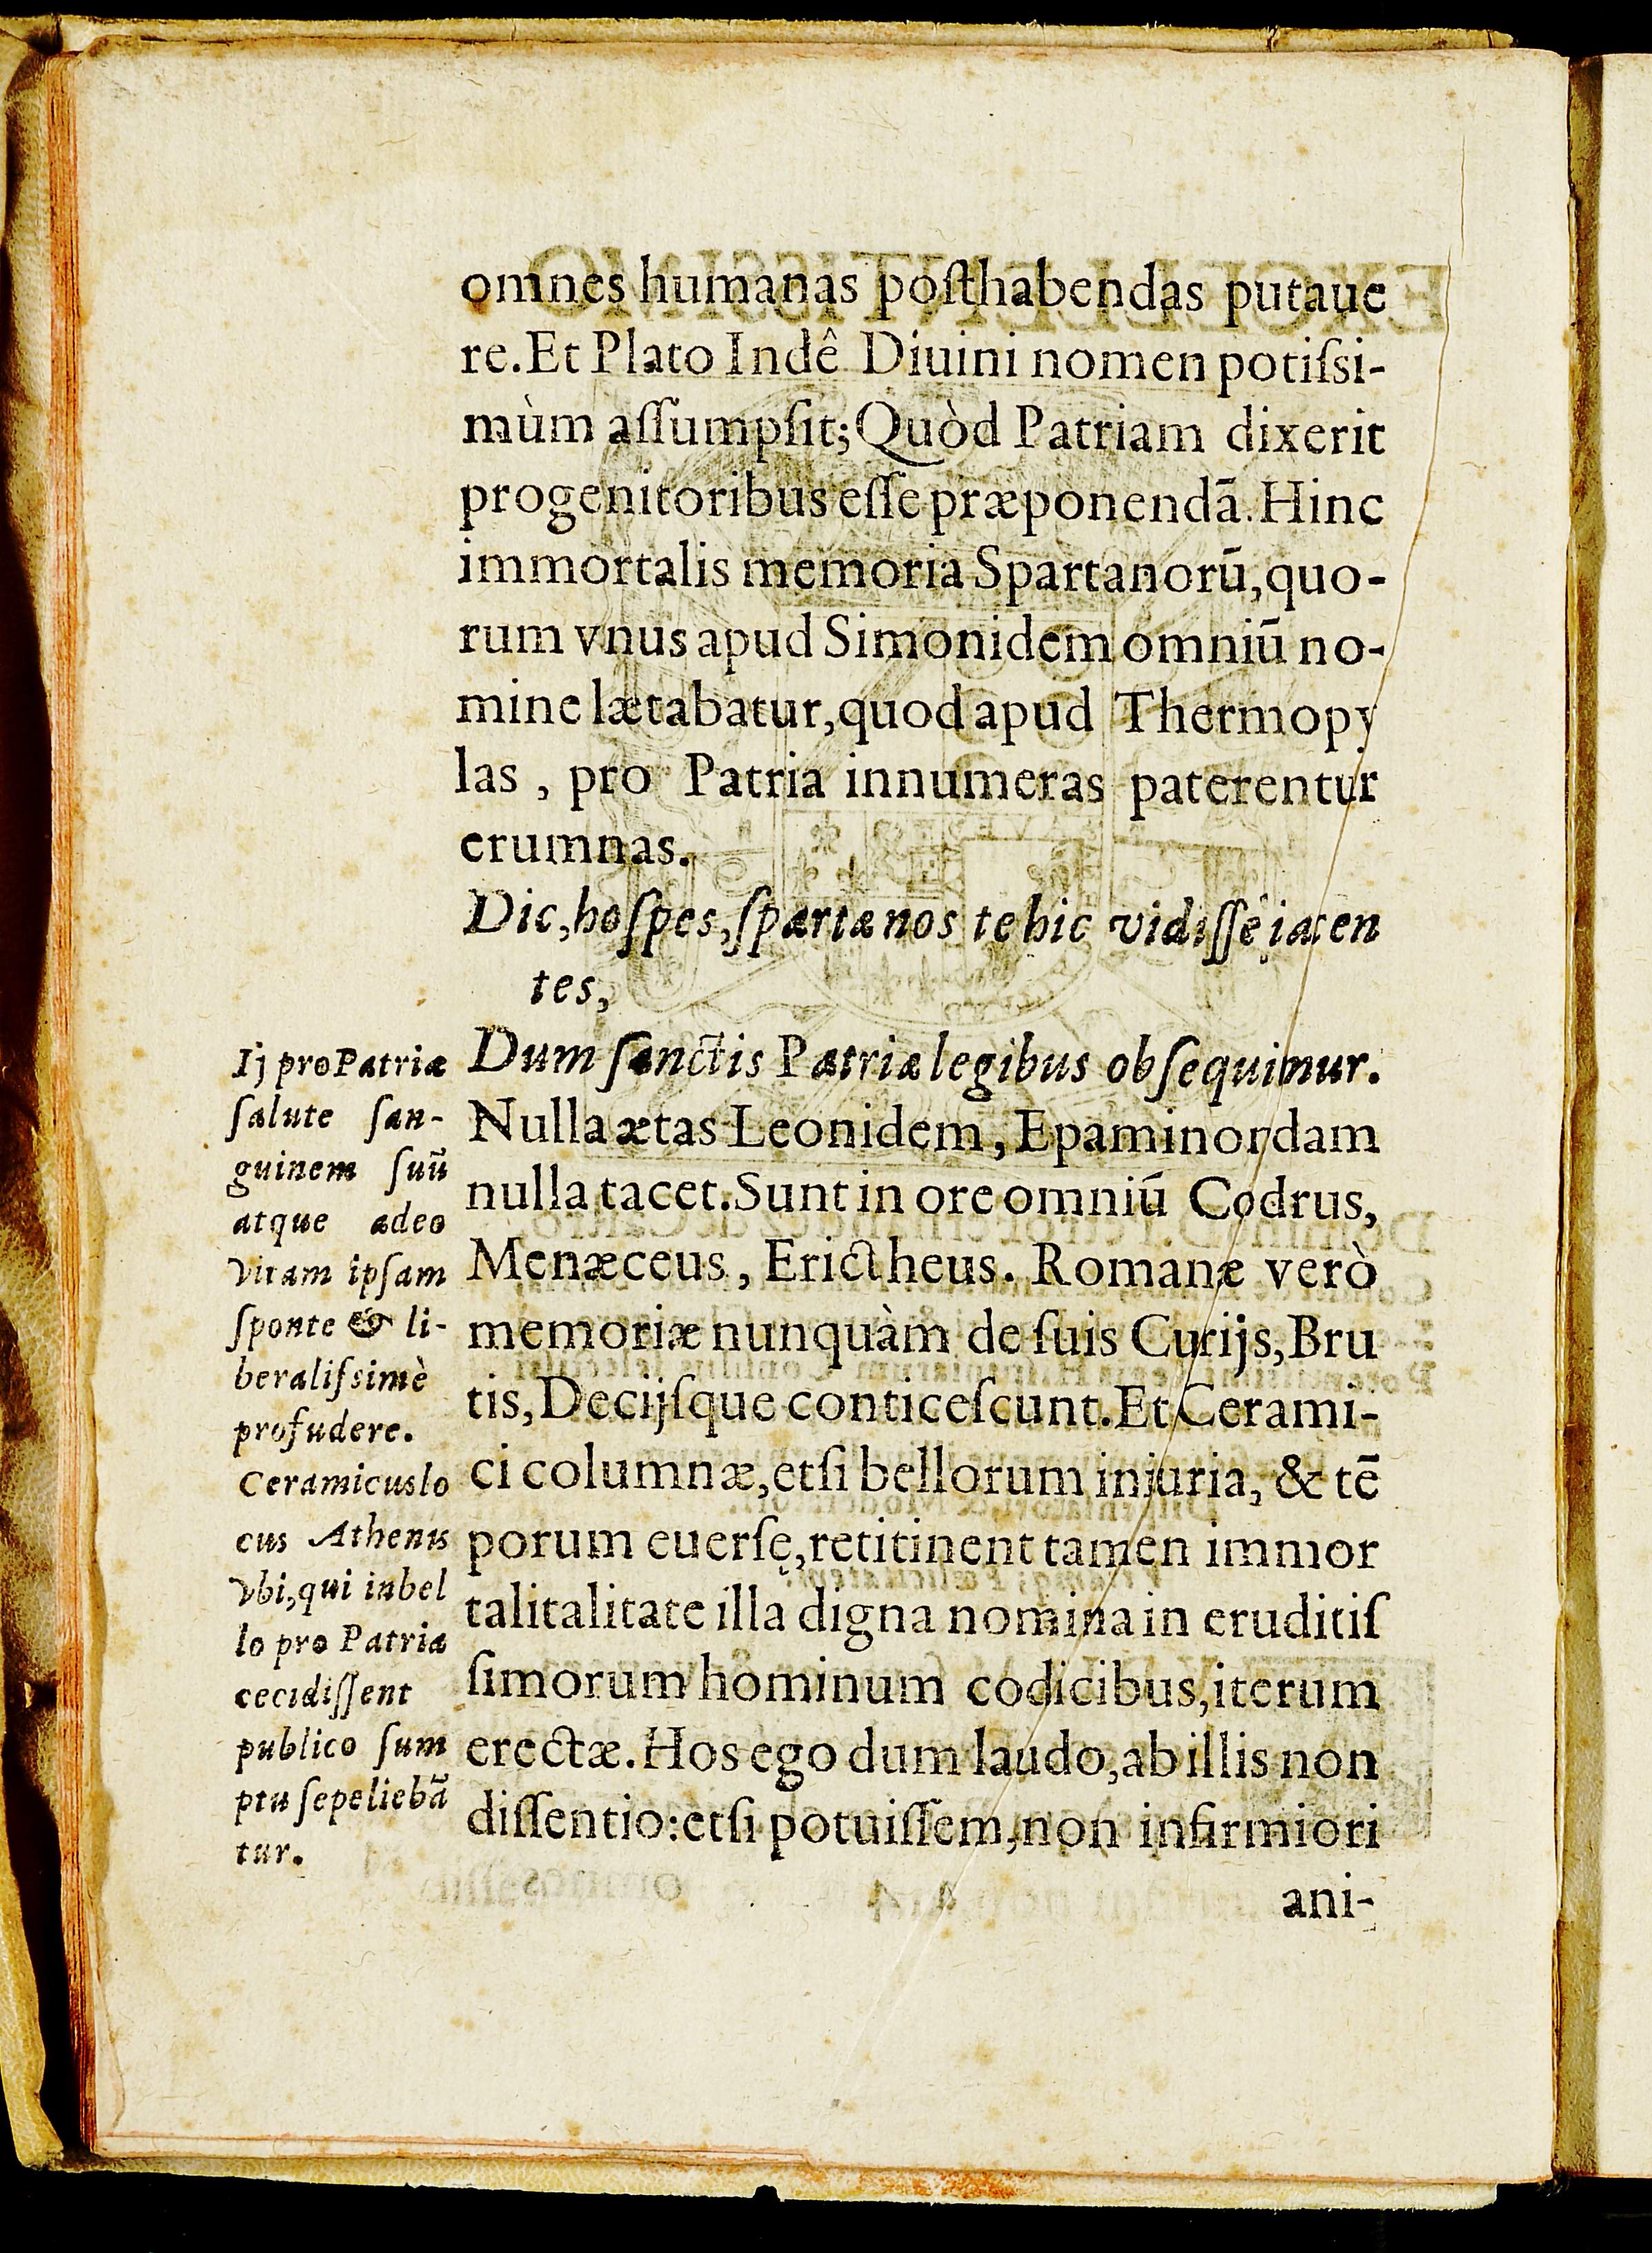 omnes humanas poſthabendas putaue
re. Et Plato Indê Diuini nomen potiſsi-
mùm aſſumpſit; Quòd Patriam dixerit
progenitoribus eſſe præponendā. Hinc
immortalis memoria Spartanorū, quo-
rum vnus apud Simonidem omniū no-
mine lætabatur, quod apud Thermopy
las, pro Patria innumeras paterentur
erumnas.
Dic, hoſpes, ſpartanos te hic vidiſſe iacen
tes,
Dum ſanctis Patriæ legibus obſequimur.
Nulla ætas Leonidem, Epaminordam
nulla tacet. Sunt in ore omniū Codrus,
Menæceus, Erictheus. Romanæ verò
memoriæ nunquàm de ſuis Curijs, Bru
tis, Decijſque conticeſcunt. Et Cerami-
ci columnæ, etſi bellorum iniuria, & tē
porum euerſę, retitinent tamen immor
talitalitate illa digna nomina in eruditiſ
ſimorum hominum codicibus, iterum
erectæ. Hos ego dum laudo, ab illis non
diſſentio: etſi potuiſſem, non infirmiori
ani-
Ij pro Patriæ
ſalute ſan-
guinem ſuū
atque adeo
vitam ipſam
ſponte & li-
beraliſsimè
profudere.
Ceramicus lo
cus Athenis
vbi, qui in bel
lo pro Patria
cecidiſſent
publico ſum
ptu ſepeliebā
tur.